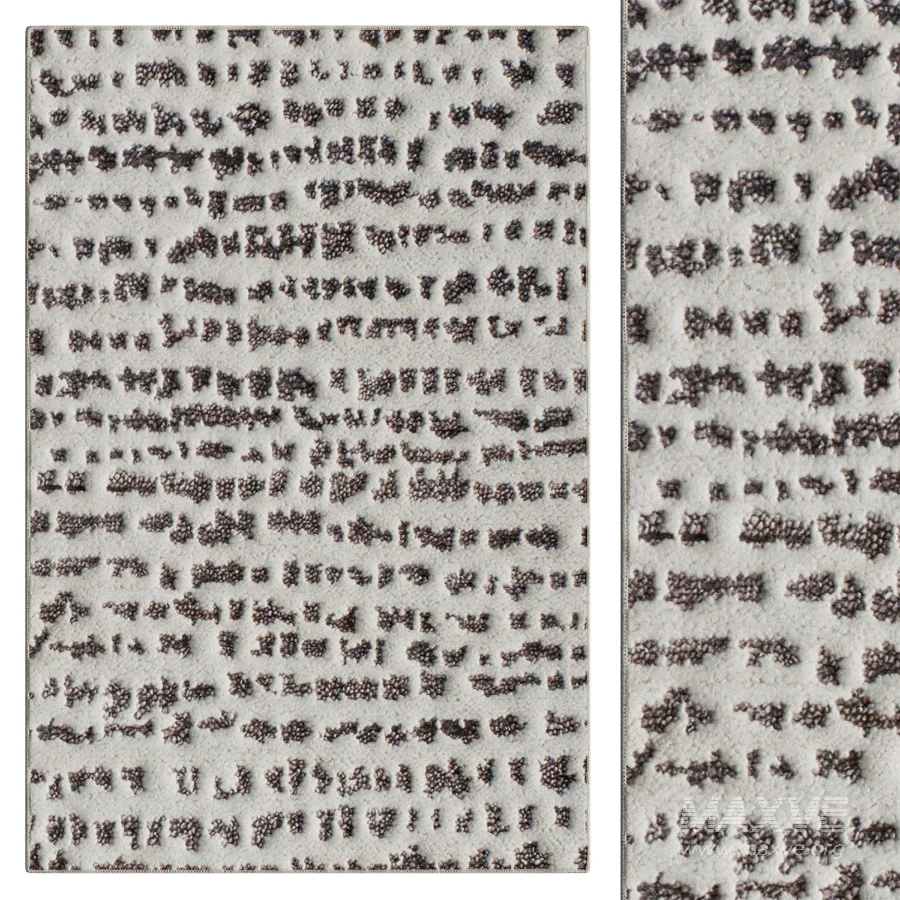 MAXVE
www.maxve.org